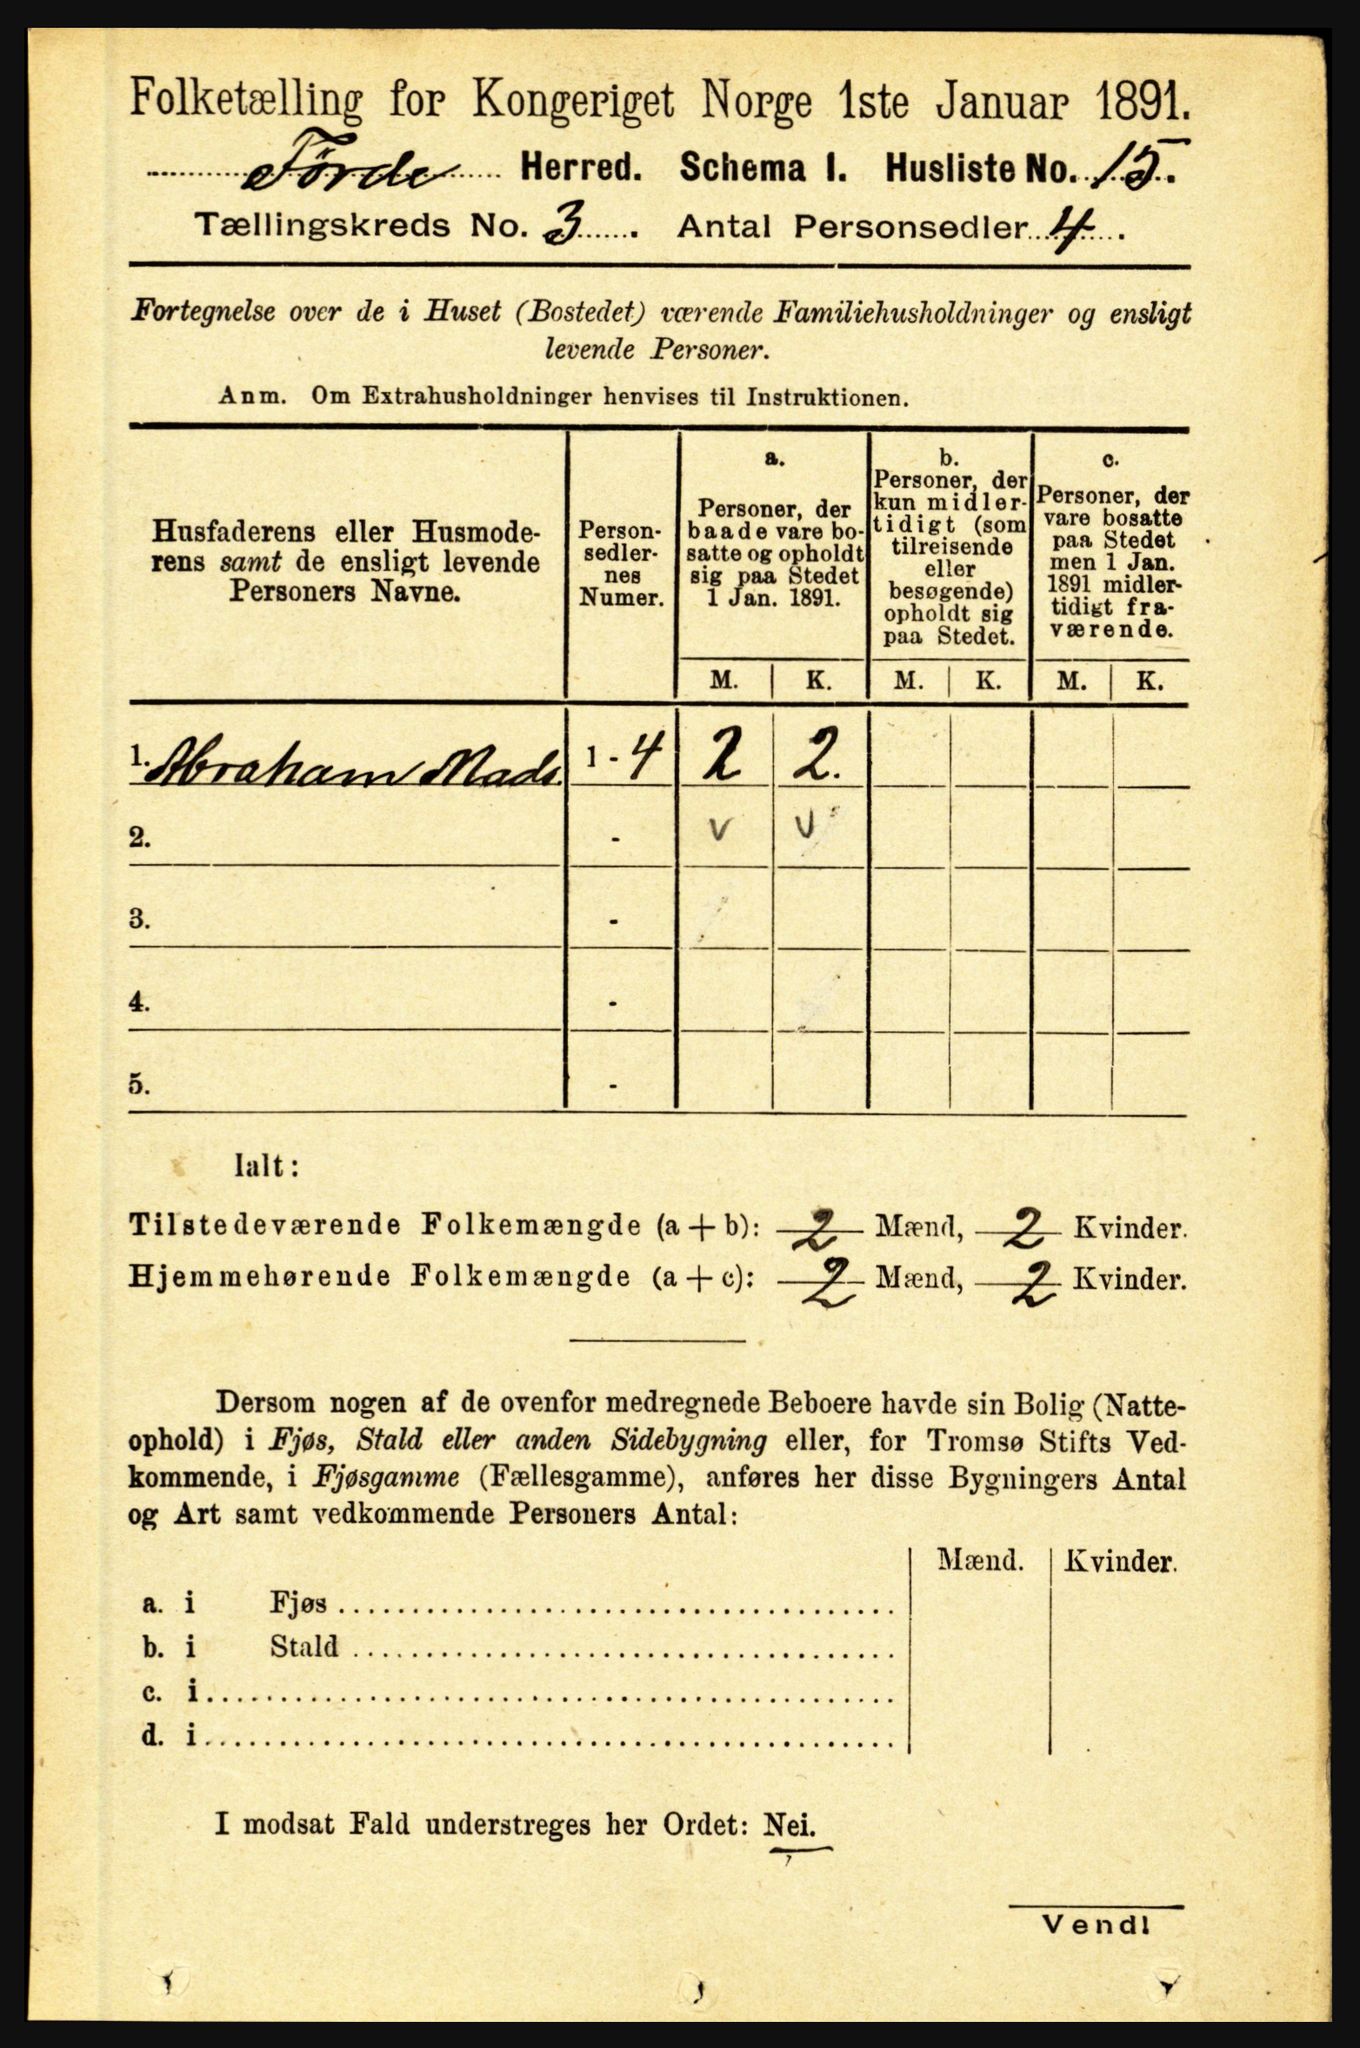 Folketælling for Kongeriget Norge 1ste Januar 1891.
Førde Herred. Schema I. Husliste No. 15.
Tællingskreds No. 3. Antal Personsedler 4.
Fortegnelse over de i Huset (Bostedet) værende Familiehusholdninger og ensligt
levende Personer.
Anm. Om Extrahusholdninger henvises til Instruktionen.
Husfaderens eller Husmode-
rens samt de ensligt levende
Personers Navne.
Person-
sedler-
nes
Numer.
a.
Personer, der
baade vare bo-
satte og opholdt
sig paa Stedet
1 Jan. 1891.
b.
Personer, der
kun midler-
tidigt (som
tilreisende
eller
besøgende)
opholdt sig
paa Stedet.
c.
Personer, der
vare bosatte
paa Stedet
men 1 Jan.
1891 midler-
tidigt fra-
værende.
M. K. M. K. M. K.
1. Abraham Mads. 1 - 4 2 2.
2. - v v
3. -
4. -
5. -
Ialt:
Tilstedeværende Folkemængde (a + b): 2 Mænd, 2 Kvinder.
Hjemmehørende Folkemængde (a + c): 2 Mænd, 2 Kvinder.
Dersom nogen af de ovenfor medregnede Beboere havde sin Bolig (Natte-
ophold) i Fjøs, Stald eller anden Sidebygning eller, for Tromsø Stifts Ved-
kommende, i Fjøsgamme (Fællesgamme), anføres her disse Bygningers Antal
og Art samt vedkommende Personers Antal:
Mænd. Kvinder.
a. i Fjøs
b. i Stald
c. i
d. i
I modsat Fald understreges her Ordet: Nei.
Vend!